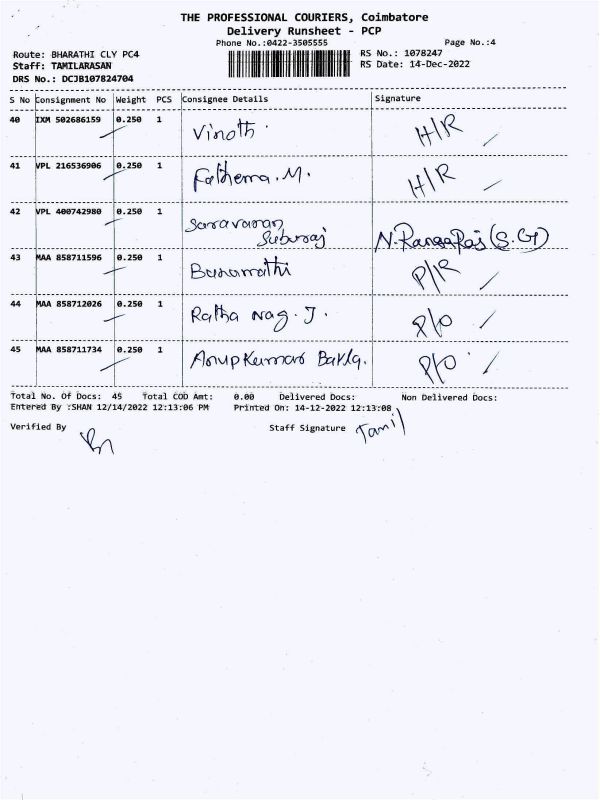 THE PROFESSIONAL COURIERS, Coimbatore
Delivery Runsheet - PCP
Phone No.:0422-3505555 Page No.:4
Route: BHARATHI CLY PC4 RS No.: 1078247
Staff: TAMILARASAN RS Date: 14-Dec-2022
DRS No.: DCJB107824704
S No Consignment No Weight PCS Consignee Details Signature
40 IXM 502686159 0.250 1 Vinoth. H/R
41 VPL 216536906 0.250 1 Fathema.M. H/R
42 VPL 400742980 0.250 1 Saravanan
Suburaj N.RangaRaj (S.G)
43 MAA 858711596 0.250 1 Banumathi P/R
44 MAA 858712026 0.250 1 Ratha Nag. J. P/O
45 MAA 858711734 0.250 1 Anupkumar Barla. P/O
Total No. Of Docs: 45 Total COD Amt: 0.00 Delivered Docs: Non Delivered Docs:
Entered By :SHAN 12/14/2022 12:13:06 PM Printed On: 14-12-2022 12:13:08
Verified By Staff Signature Tamil